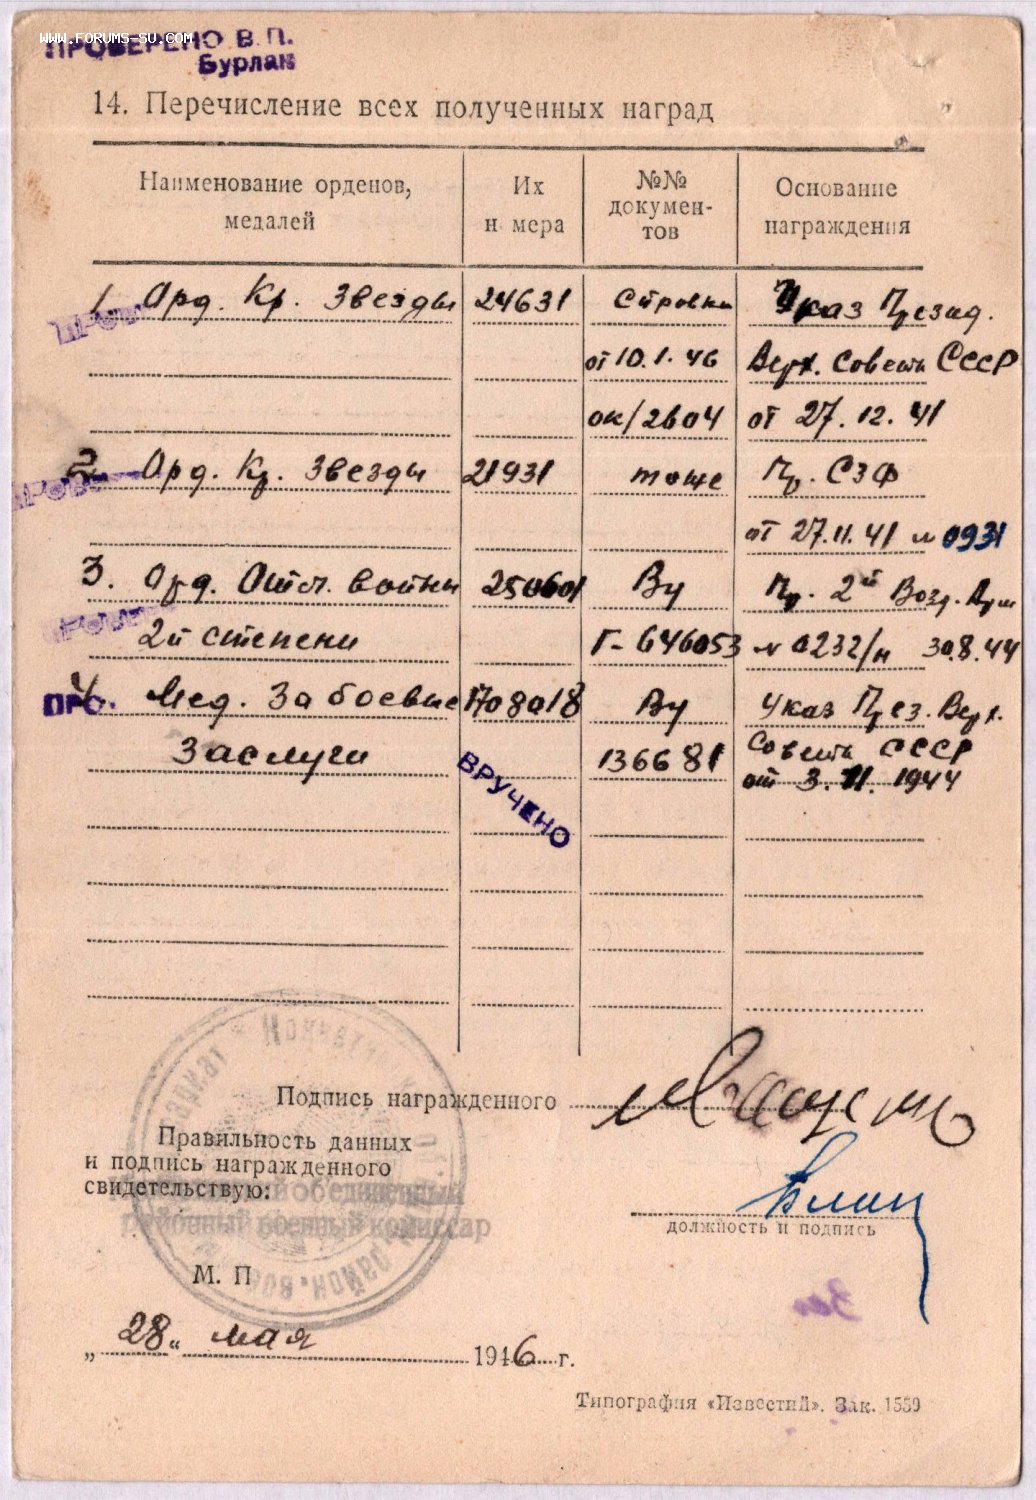 www.forums-su.com
ПРОВЕРЕНО В.П.
Бурлак
14. Перечисление всех полученных наград
Наименование орденов, медалей | Их н мера | №№ докумен-тов | Основание награждения
1. Орд. Кр. Звезды 24631 Справка Указ Презид.
от 10.1.46 Верх. Совета СССР
ок/2604 от 27.12.41
2. Орд. Кр. Звезды 21931 тоже Пр. СЗФ
от 27.11.41 № 0931
3. Орд. Отеч. войны 250601 Ву Пр. 2й Возд. Арм
2й степени Г-646053 № 0232/н 30.8.44
4. Мед. За боевые 1708018 Ву Указ През. Верх.
Заслуги 136681 Совета СССР
от 3.11.1944
ВРУЧЕНО
Подпись награжденного
Правильность данных
и подпись награжденного
свидетельствую:
объединенный
районный военный комиссар
должность и подпись
М. П
„28“ мая 1946 г.
Типография «Известий». Зак. 1559